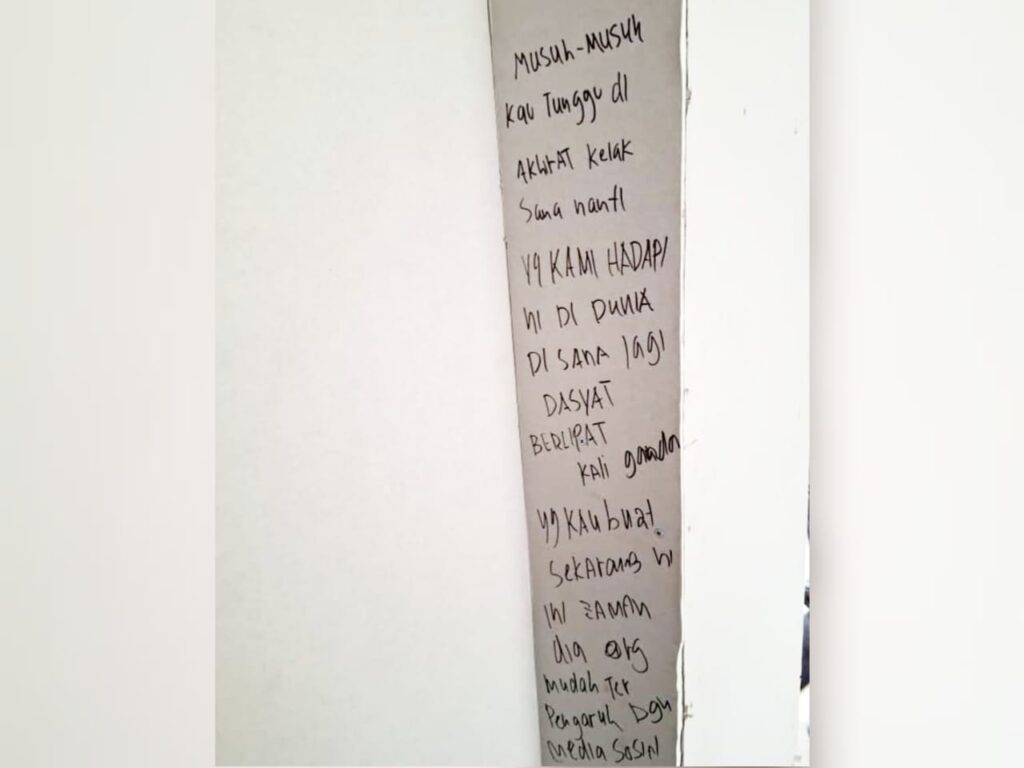 MUSUh-MUSUh
kau Tunggu dI
AKhrAT kelak
Sana nantI
Yg KAMI HADAPI
ni DI DUNIA
DI SANA lagi
DASYAT
BERLIPAT
KALi ganda
yg KAu buat
SekArang ni
INI ZAMAN
dia org
Mudah Ter
Pengaruh Dgn
Media SoSIN